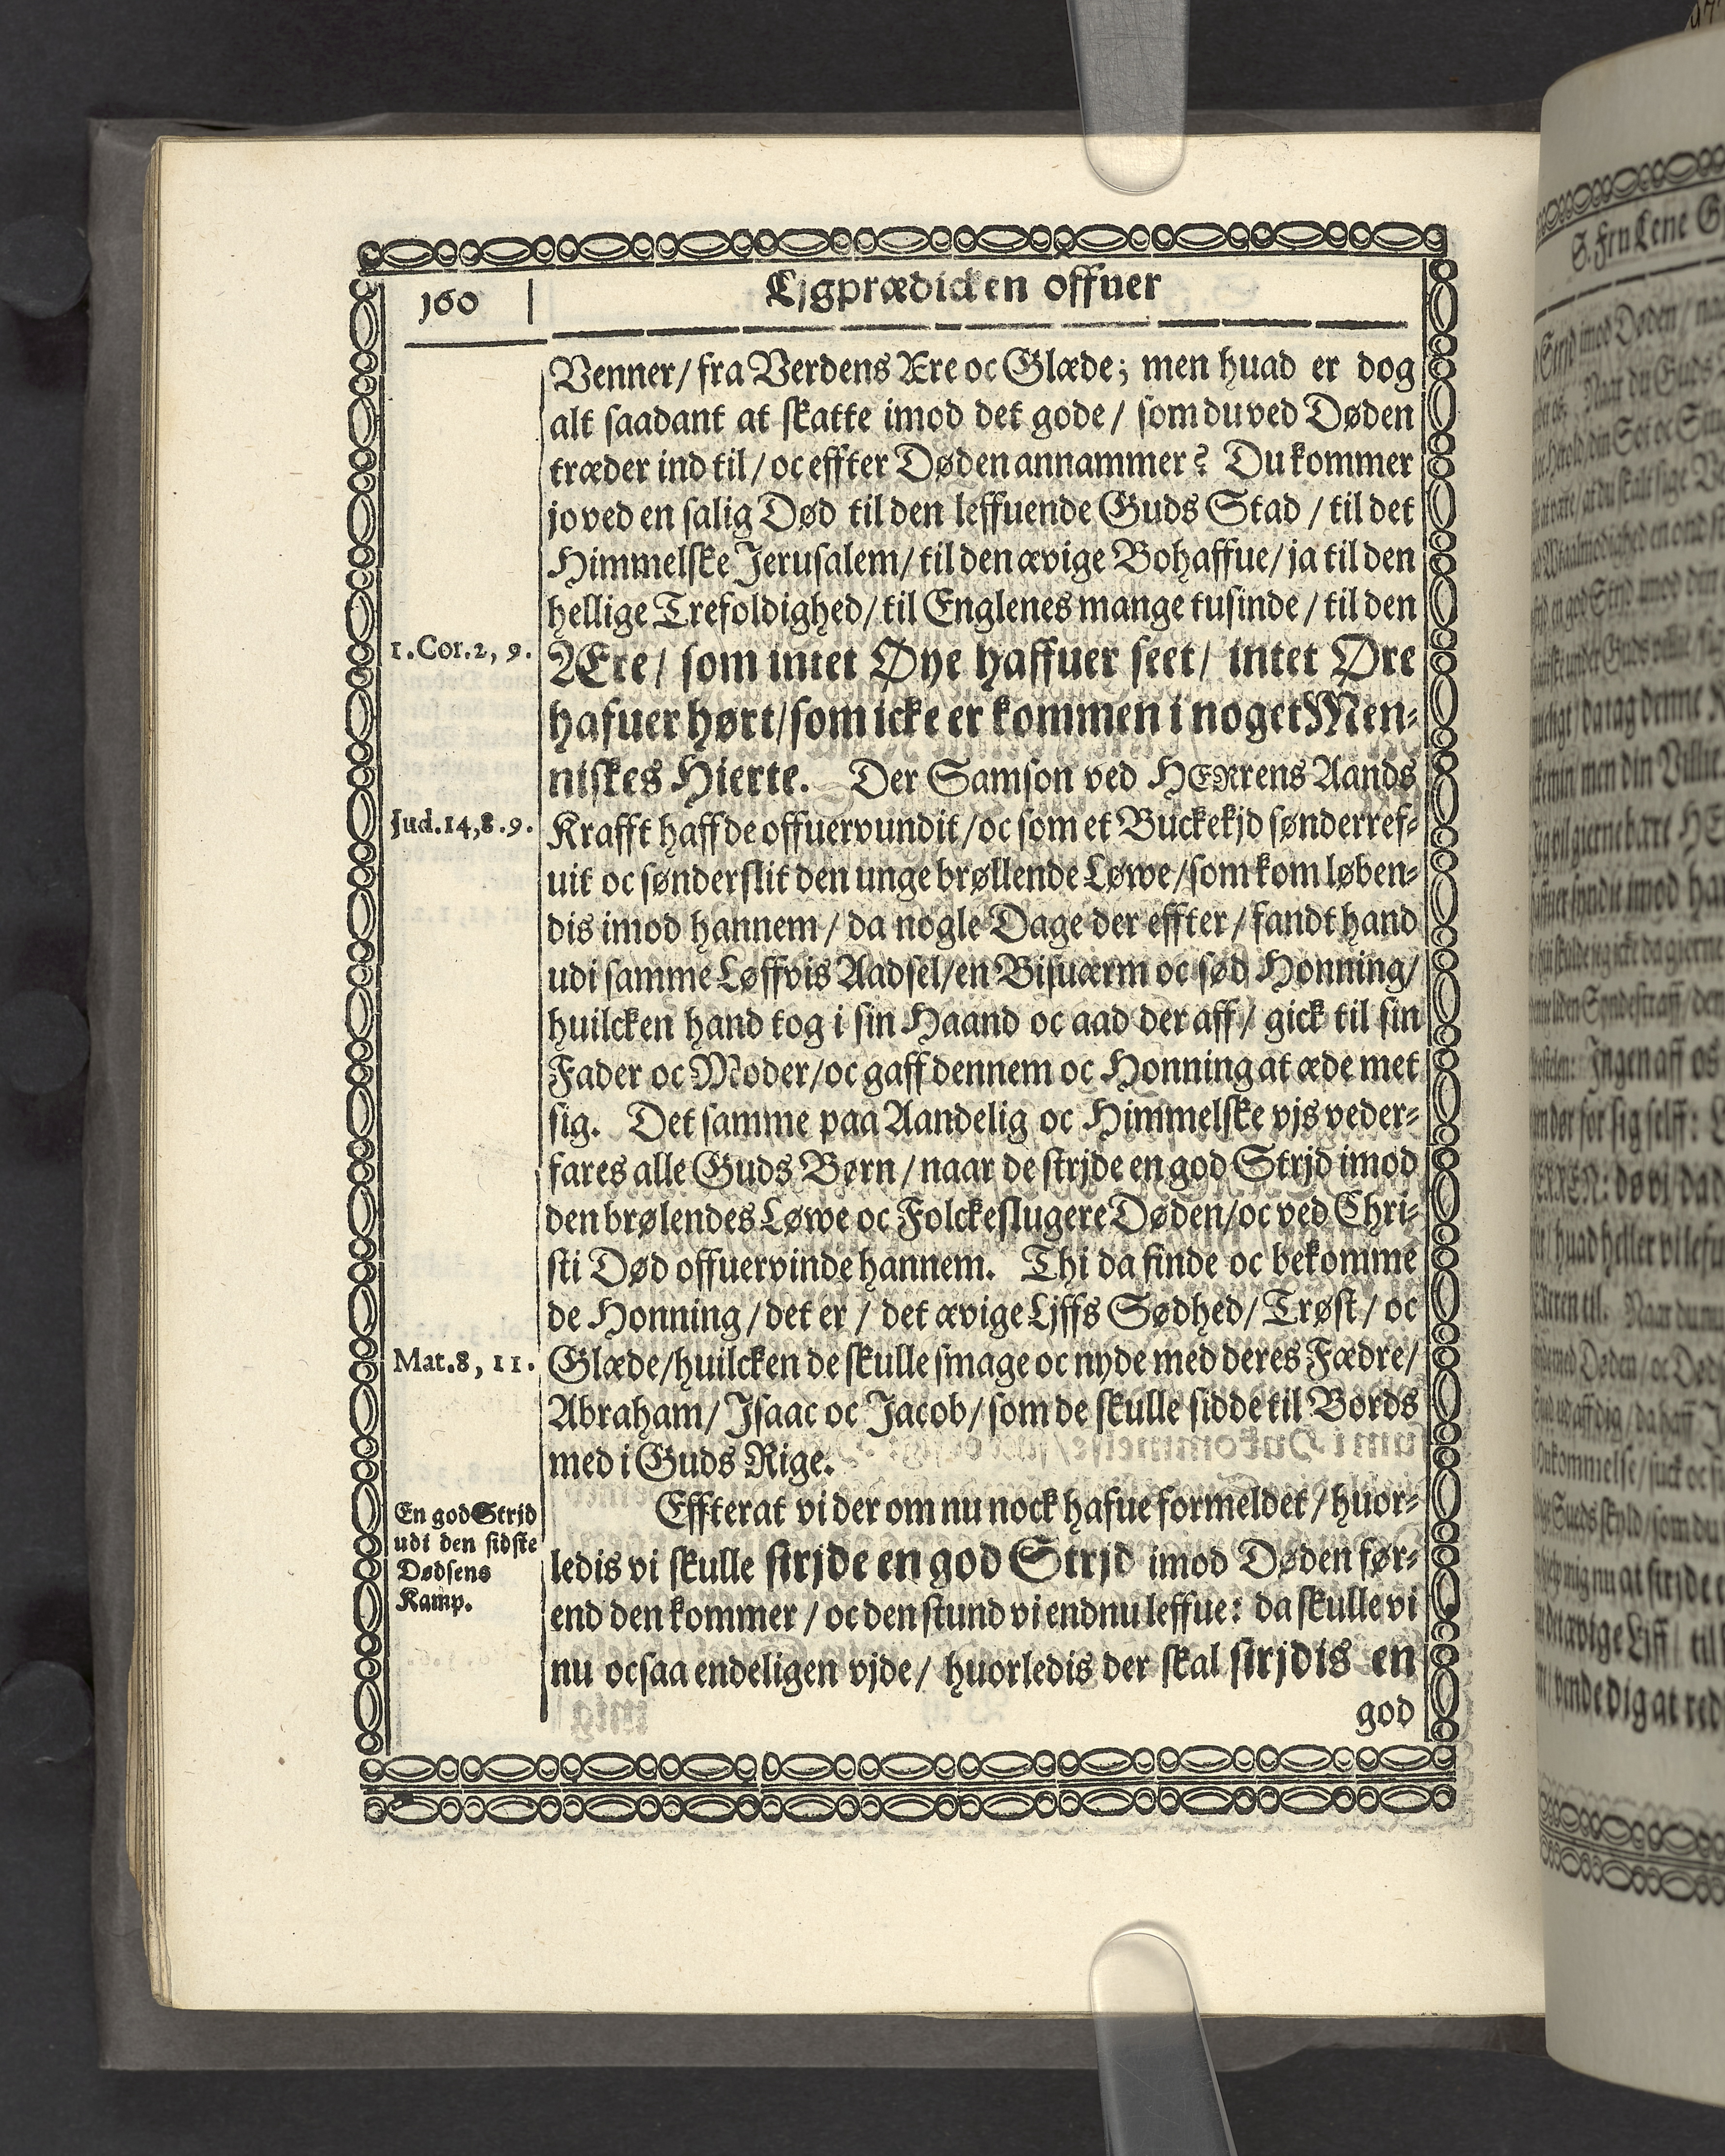 160
Ljgprædicken offuer
Venner/ fra Verdens Ære oc Glæde; men huad er dog
alt saadant at skatte imod det gode/ som du ved Døden
træder ind til/ oc effter Døden annammer? Du kommer
jo ved en salig Død til den leffuende Guds Stad/ til det
Himmelske Jerusalem/ til den ævige Bohaffue/ ja til den
hellige Trefoldighed/ til Englenes mange tusinde/ til den
1. Cor. 2, 9.
Ære/ som intet Øye haffuer seet/ intet Øre
hafuer hørt/ som icke er kommen i noget Men-
niskes Hierte. Der Samson ved HErrens Aands
Jud. 14, 8. 9.
Krafft haffde offuervundit/ oc som et Buckekjd sønderref-
uit oc sønderslit den unge brøllende Løwe/ som kom løben-
dis imod hannem/ da nogle Dage der effter/ fandt hand
udi samme Løffvis Aadsel/ en Bisuærm oc sød Honning/
huilcken hand tog i sin Haand oc aad der aff/ gick til sin
Fader oc Moder/ oc gaff dennem oc Honning at æde met
sig. Det samme paa Aandelig oc Himmelske vjs veder-
fares alle Guds Børn/ naar de strjde en god Strjd imod
den brølendes Løwe oc Folckeslugere Døden/ oc ved Chri-
sti Død offuervinde hannem. Thi da finde oc bekomme
de Honning/ det er/ det ævige Ljffs Sødhed/ Trøst/ oc
Mat. 8, 11.
Glæde/ huilcken de skulle smage oc nyde med deres Fædre/
Abraham/ Isaac oc Jacob/ som de skulle sidde til Bords
med i Guds Rige.
En god Strjd
udi den sidste
Dødsens
Kamp.
Effterat vi der om nu nock hafue formeldet/ huor-
ledis vi skulle strjde en god Strjd imod Døden før-
end den kommer/ oc den stund vi endnu leffue: da skulle vi
nu ocsaa endeligen vjde/ huorledis der skal strjdis en
god